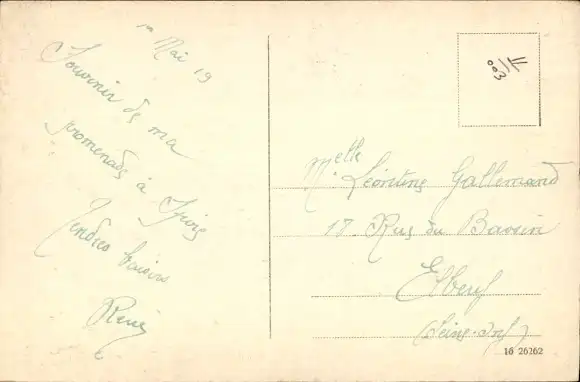 Mai 19
Souvenir de ma
promenade à
Tendres baisers
René
Melle Léontine Gallemand
18 Rue du Bassin
Elbeuf
(Seine-Inf)
16 26262